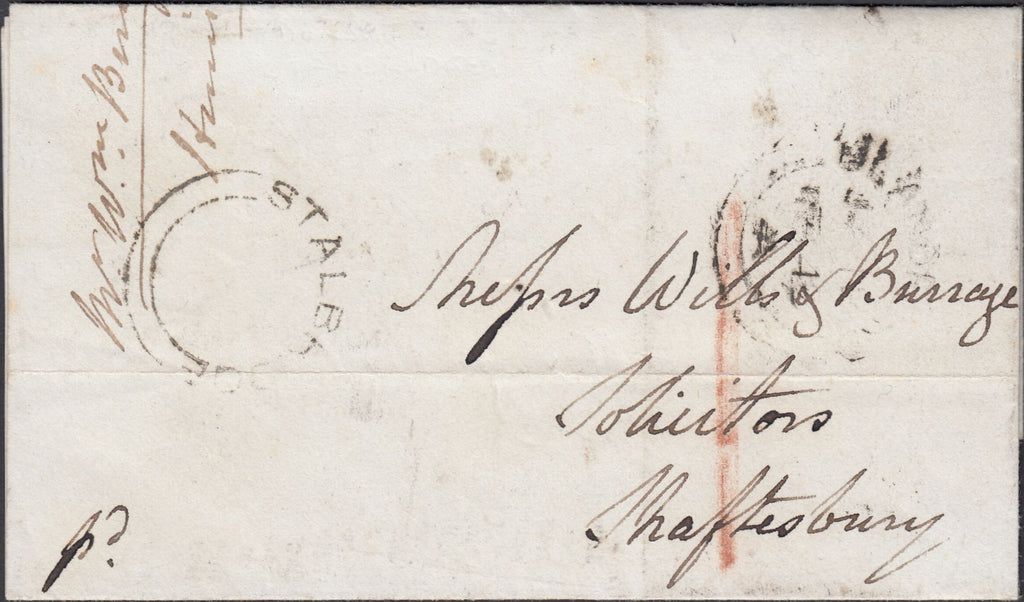 Mr Wm. Bur
STALBRIDGE
Messrs Wills & Burrage
Solicitors
Shaftesbury
pd.